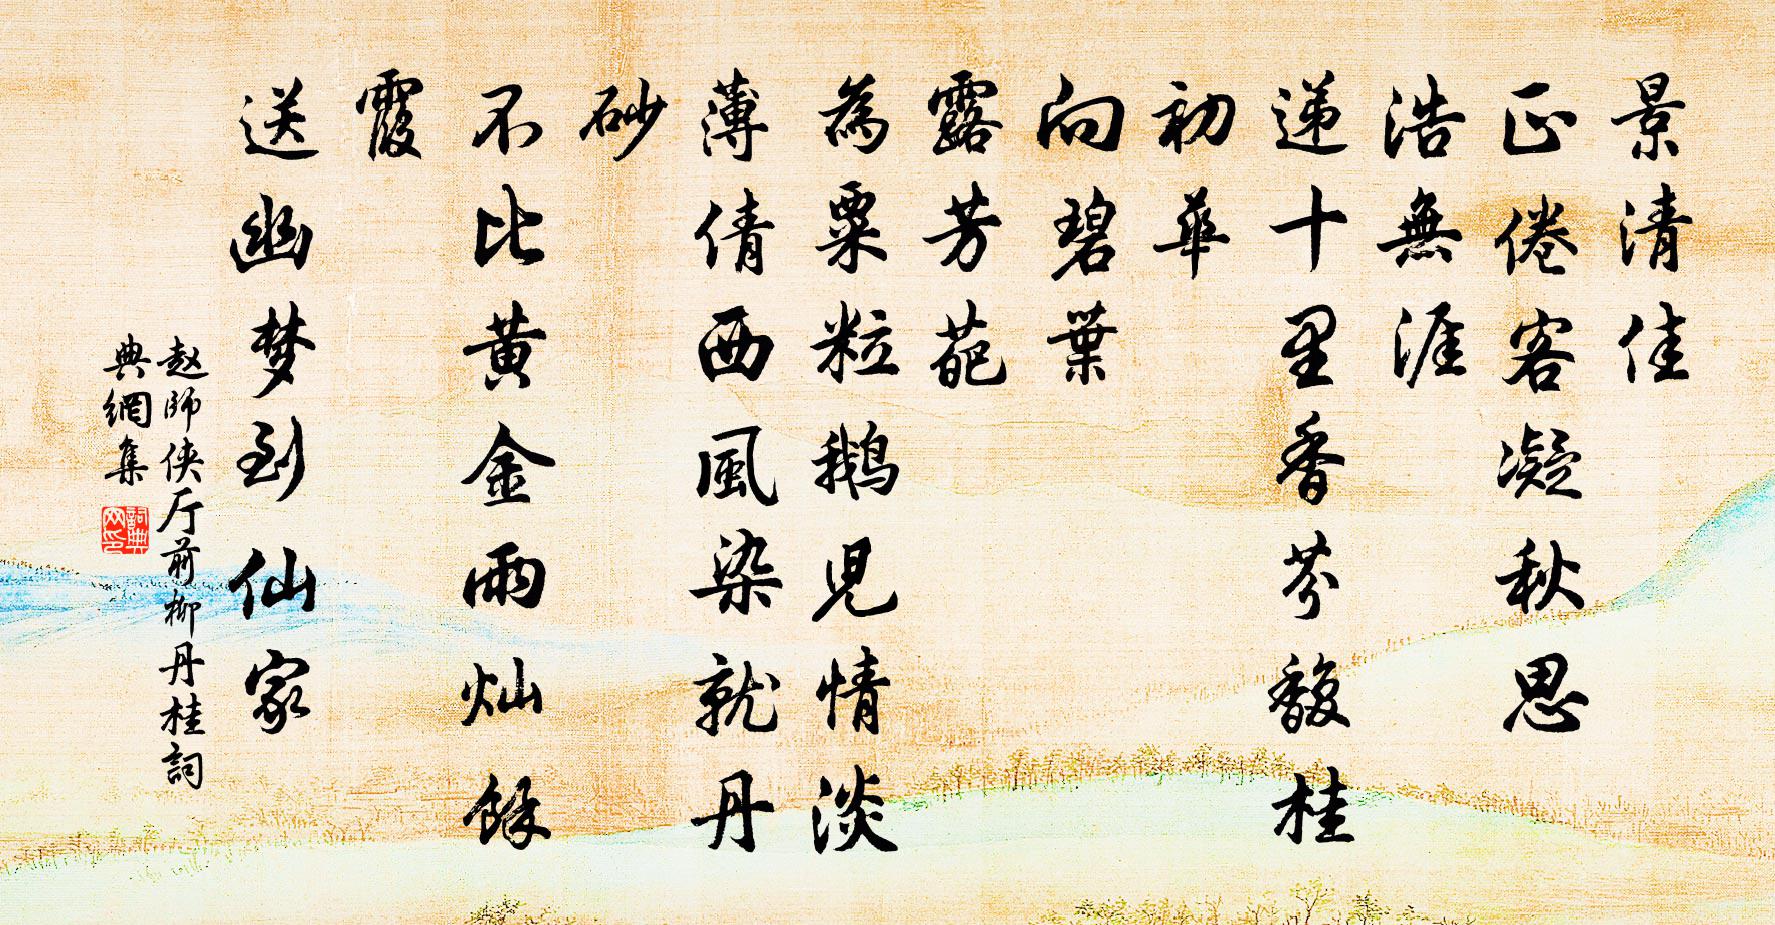 景清佳
正倦客凝秋思
浩無涯
递十里香芬馥桂
初華
向碧葉
露芳葩
為粟粒鹅児情淡
薄倩西風染就丹
砂
不比黄金雨灿餘
霞
送幽梦到仙家
赵師侠厅前柳丹桂詞
典網集
詞典网印